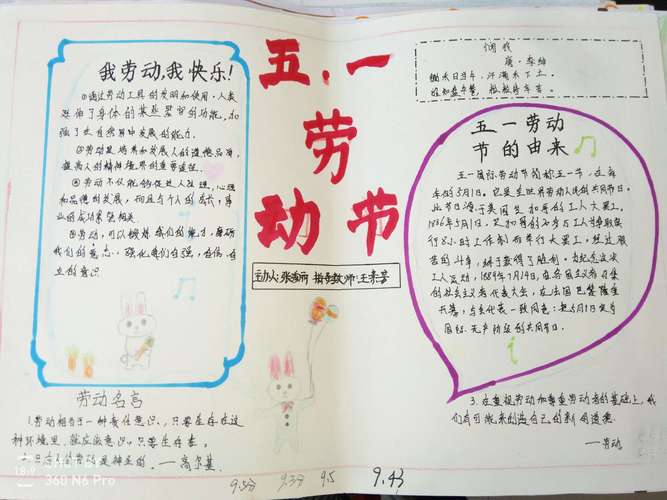 我劳动,我快乐!
①通过劳动工具的发明和使用,人类
延伸了身体的某些器官的功能,加
强了在自然界中发展的能力。
②劳动是培养和发展人的道德品质,
提高人的精神境界的重要途径。
③劳动不仅能够促进人生理、心理
和品德的发展,而且与个人的成长,事
业的成功紧紧相关。
④劳动,可以锻炼我们的能力,磨砺
我们的意志。强化我们自强、自信、自
立的意识
劳动名言
1.劳动相当于一种责任意识。只要生存在这
种环境里,就应
只要生存着,
劳动是神圣的。——高尔基
五.一
劳
动节
主办人:张
指导教师:王
悯农
唐·李绅
锄禾日当午,汗滴禾下土。
谁知盘中餐,粒粒皆辛苦。
五一劳动
节的由来
五一国际劳动节简称五一节,在每
年的5月1日。它是全世界劳动人民的共同节日。
此节日源于美国芝加哥的工人大罢工。
1886年5月1日,芝加哥的
工人为争取实
行8小时工作制而举行大罢工,经过艰
苦的斗争,终于获得了胜利。为纪念这次
工人运动,1889年7月14日,由各国马克思主义者召集
的社会主义者代表大会,在法国巴黎隆重
开幕,与会代表一致同意:把5月1日定为
国际无产阶级的共同节日。
3.在重视劳动和尊重劳动者的基础上,我
们有可能来创造自己的新的道德。
——劳动
9.5分 9.3分 9.5 9.43
18:9
360 N6 Pro